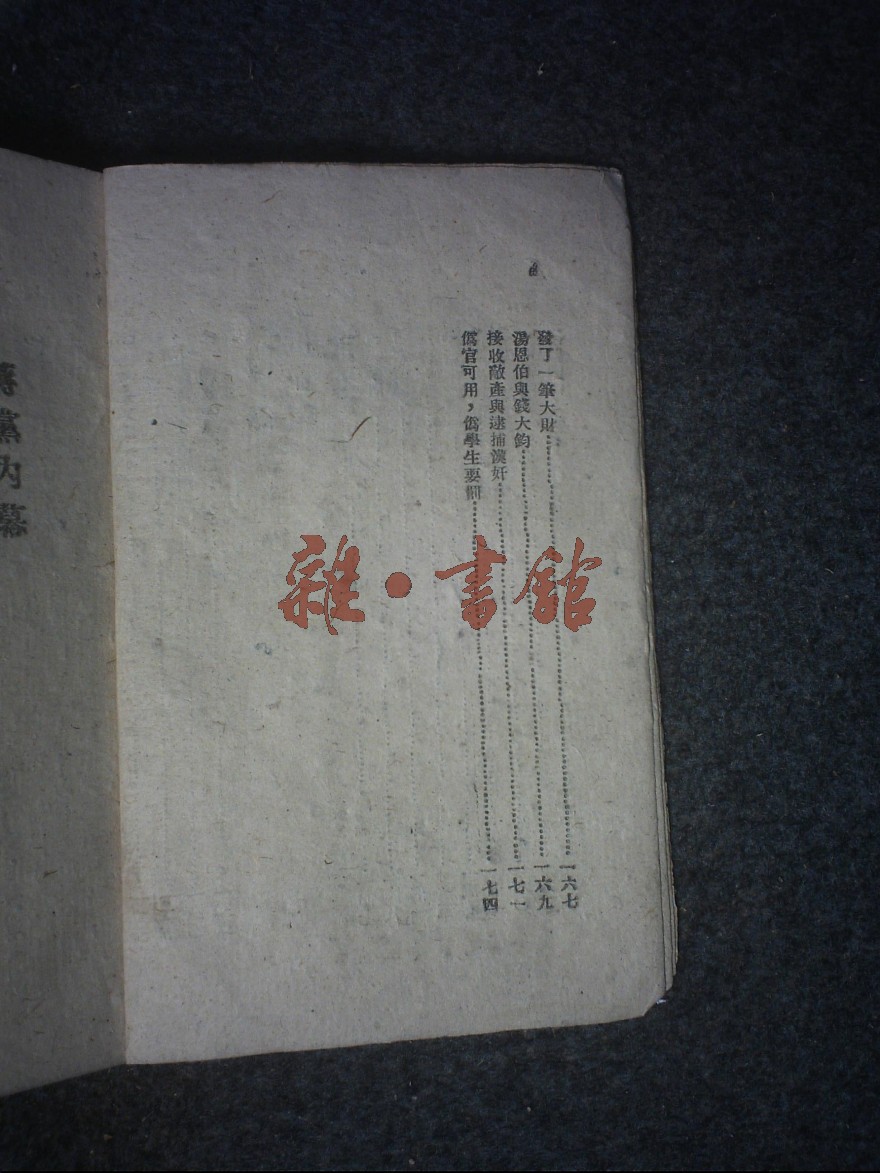 發了一筆大財……一六七
湯恩伯與錢大鈞……一六九
接收敵產與逮捕漢奸……一七一
僞官可用，僞學生要㔯……一七四
蔣黨內幕
雜·書館